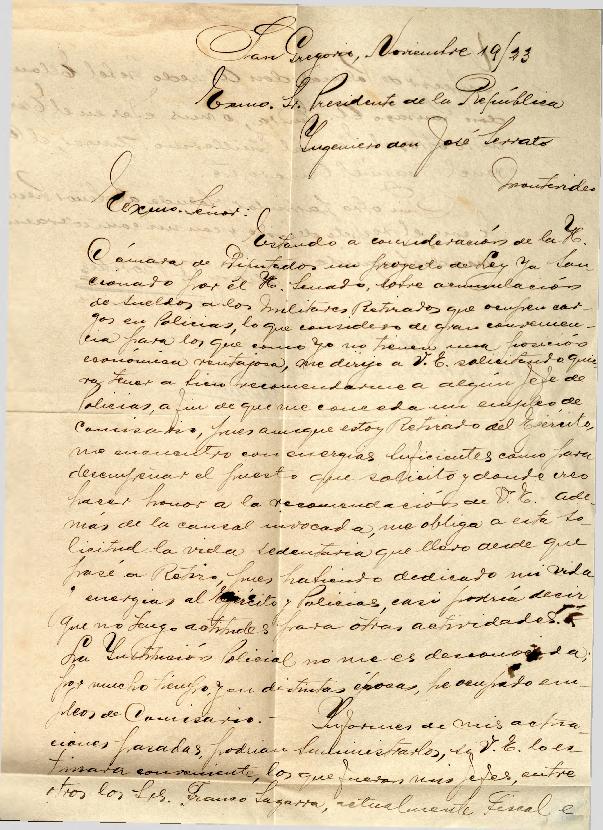 San Gregorio, Noviembre 19/23
Exmo. Sr. Presidente de la República
Ingeniero don José Serrato
Montevideo
Exmo. Señor:
Estando a consideración de la H.
Cámara de Diputados un proyecto de Ley ya san
cionado por el H. Senado, sobre acumulación
de sueldos a los Militares Retirados que ocupen car
gos en Policías, lo que considero de gran convenien
cia para los que como yo no tienen una posición
economica ventajosa, me dirijo a V. E. solicitando quie
ra tener a bien recomendarme a algún Jefe de
Policías, a fin de que me conceda un empleo de
Comisario, pues aunque estoy Retirado del Ejército,
me encuentro con energías suficientes como para
desempeñar el puesto que solicito y donde creo
hacer honor a la recomendación de V. E. ade
mas de la causal invocada, me obliga a esta so
licitud la vida sedentaria que llevo desde que
pasé a Retiro, pues habiendo dedicado mi vida
y energias al Ejército y Policias, casi podría decir
que no tengo actitudes para otras actividades.
La Institución Policial no me es desconocida;
por mucho tiempo, y en distintas épocas, he ocupado em
pleos de Comisario.- Informes de mis actua
ciones pasadas podrian suministrarlos, si V. E. lo es
timara conveniente, los que fueron mis Jefes, entre
otros los Srs. Franco Sagarra, actualmente Fiscal e